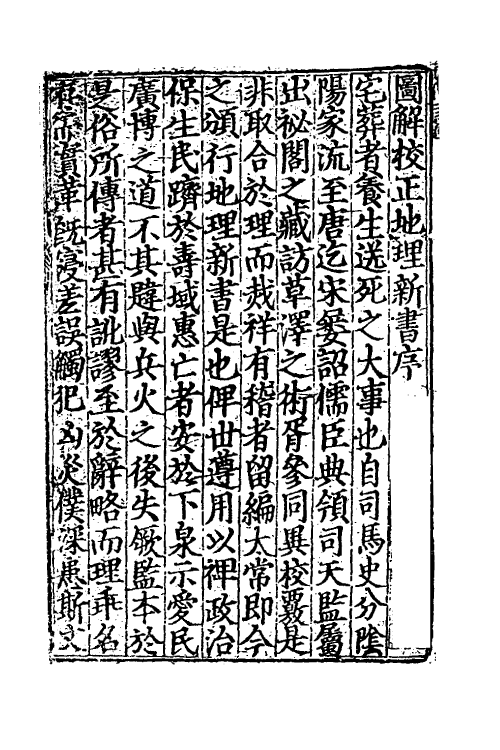 圖解校正地理新書序
宅葬者養生送死之大事也自司馬史分陰
陽家流至唐迄宋爰詔儒臣典領司天監屬
出祕閣之藏訪草澤之術胥參同異校覈是
非取合於理而裁祥有稽者留編太常即今
之頒行地理新書是也俾世遵用以裨政治
保生民躋於壽域惠亡者安於下泉示愛民
廣博之道不其韙歟兵火之後失厥監本於
是俗所傳者甚有訛謬至於辭略而理乖名
實革既寖差誤觸犯凶災僕深患斯文